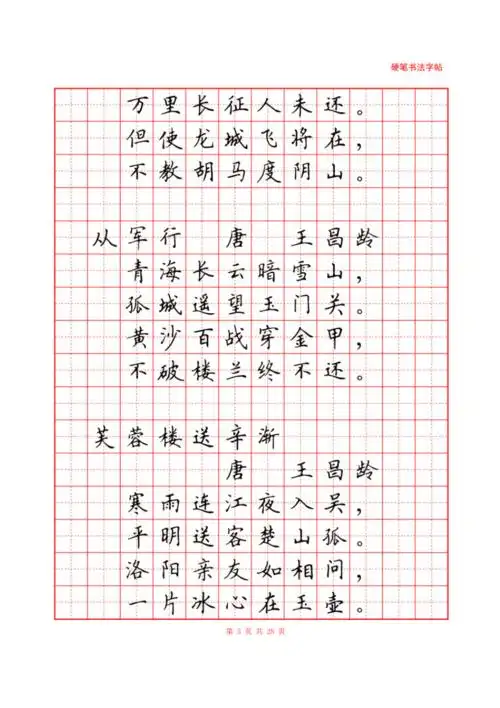 硬笔书法字帖
万里长征人未还。
但使龙城飞将在,
不教胡马度阴山。
从军行 唐 王昌龄
青海长云暗雪山,
孤城遥望玉门关。
黄沙百战穿金甲,
不破楼兰终不还。
芙蓉楼送辛渐
唐 王昌龄
寒雨连江夜入吴,
平明送客楚山孤。
洛阳亲友如相问,
一片冰心在玉壶。
第 5 页 共 28 页